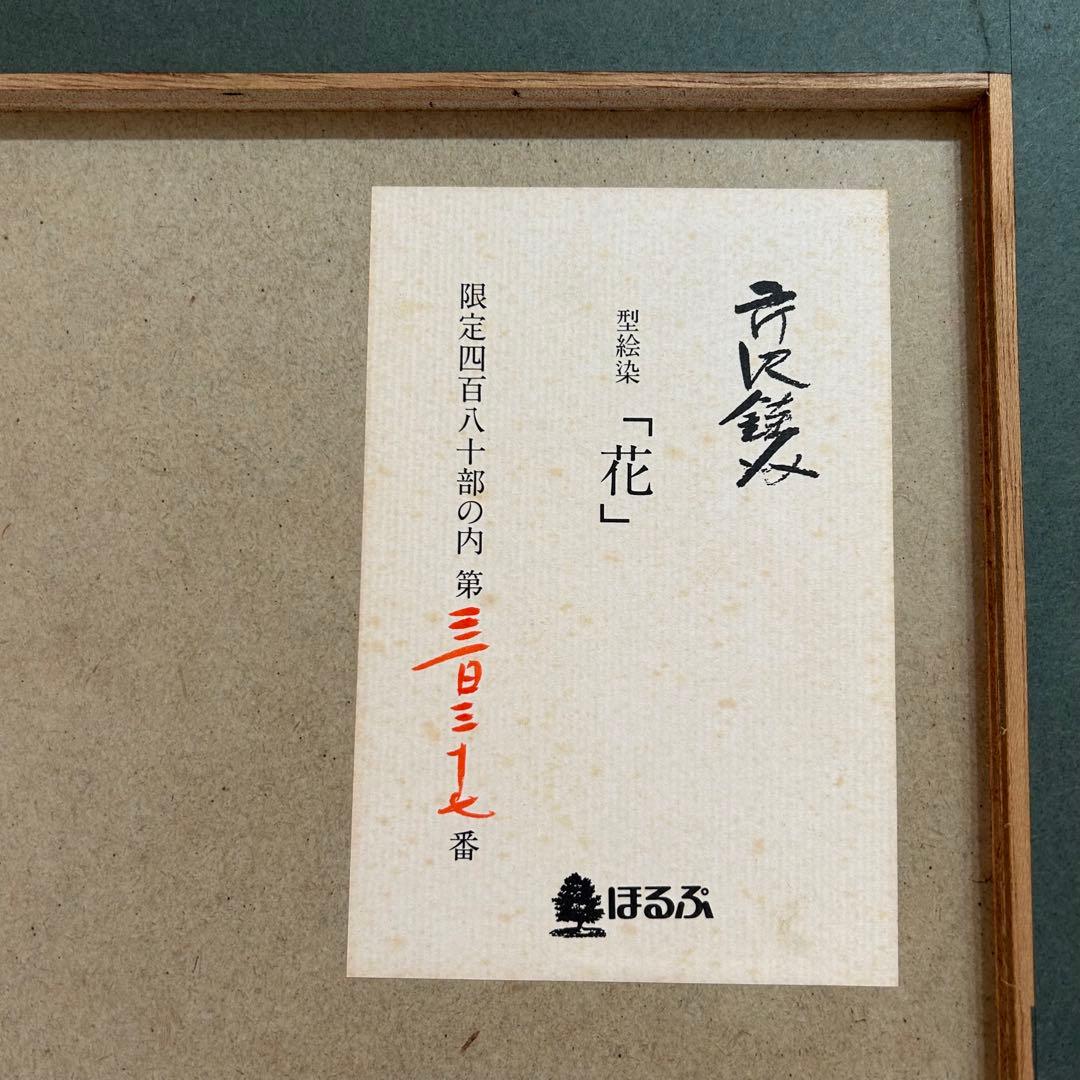 芹沢銈介
型絵染「花」
限定四百八十部の内 第三百三十七番
ほるぷ